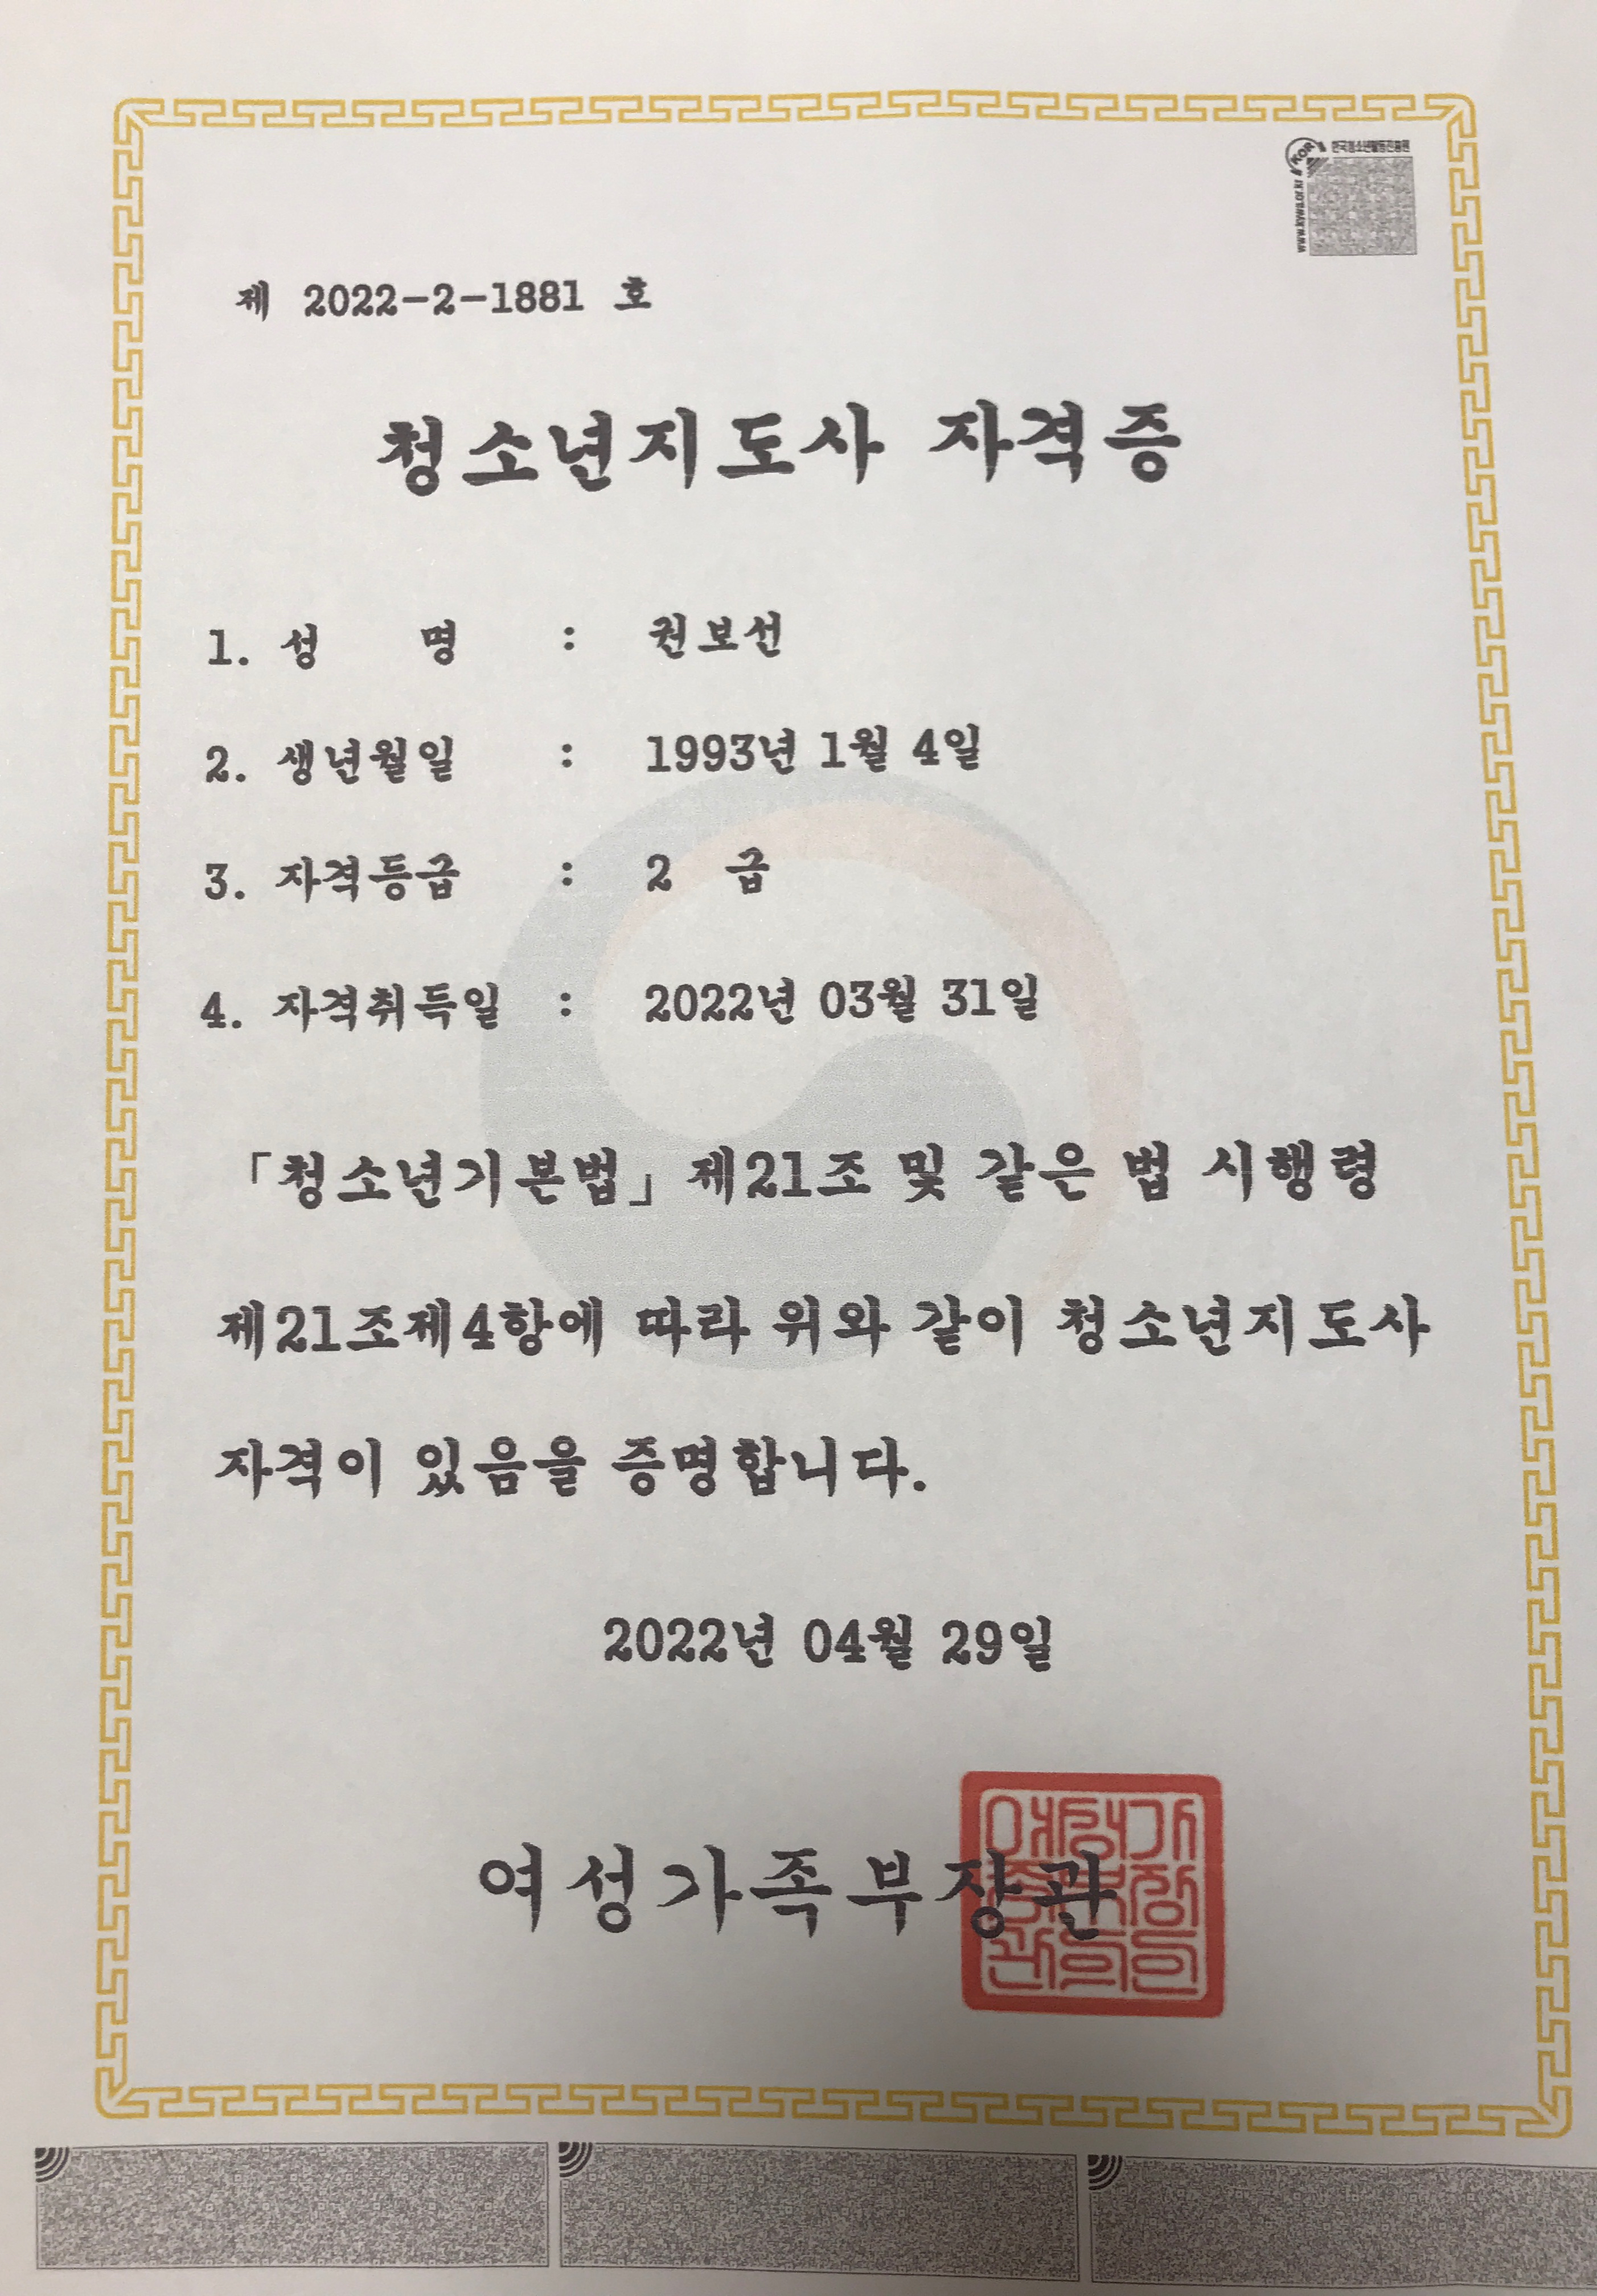 한국청소년활동진흥원
KOR
www.kywa.or.kr
제 2022-2-1881 호
청소년지도사 자격증
1. 성 명 : 권보선
2. 생년월일 : 1993년 1월 4일
3. 자격등급 : 2 급
4. 자격취득일 : 2022년 03월 31일
「청소년기본법」 제21조 및 같은 법 시행령
제21조제4항에 따라 위와 같이 청소년지도사
자격이 있음을 증명합니다.
2022년 04월 29일
여성가족부장관